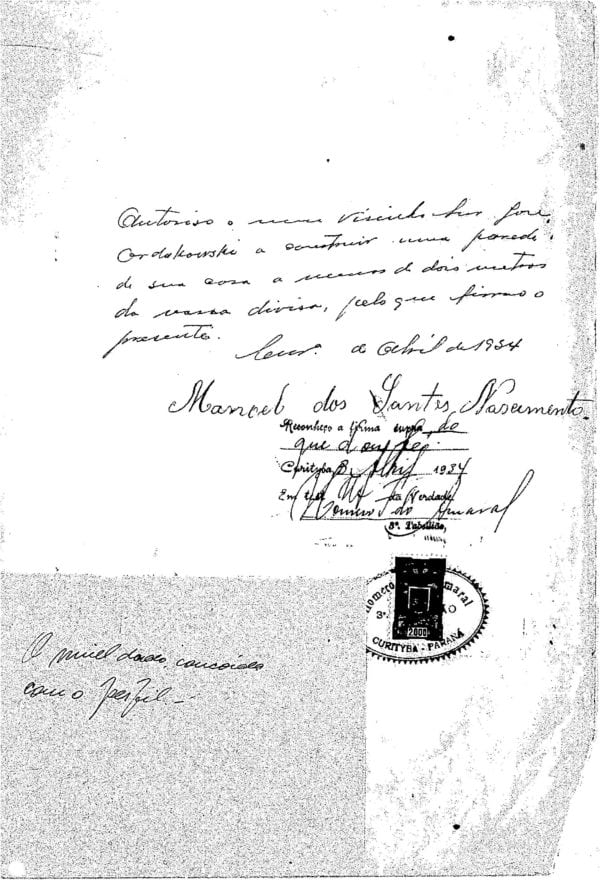 Autoriso o meu visinho Snr José
Cordakowski a construir uma parede
de sua casa a menos de dois metros
da nossa divisa, pelo que firmo o
presente.
de Abril de 1934
Manoel dos Santos Nascimento.
Reconheço a firma supra, do
que dou fé.
Curityba, Abril 1934
Em da Verdade
Homero do Amaral
3º. Tabellião,
Homero do Amaral
3º
2000
CURITYBA - PARANÁ
O nivel dado,
com o perfil